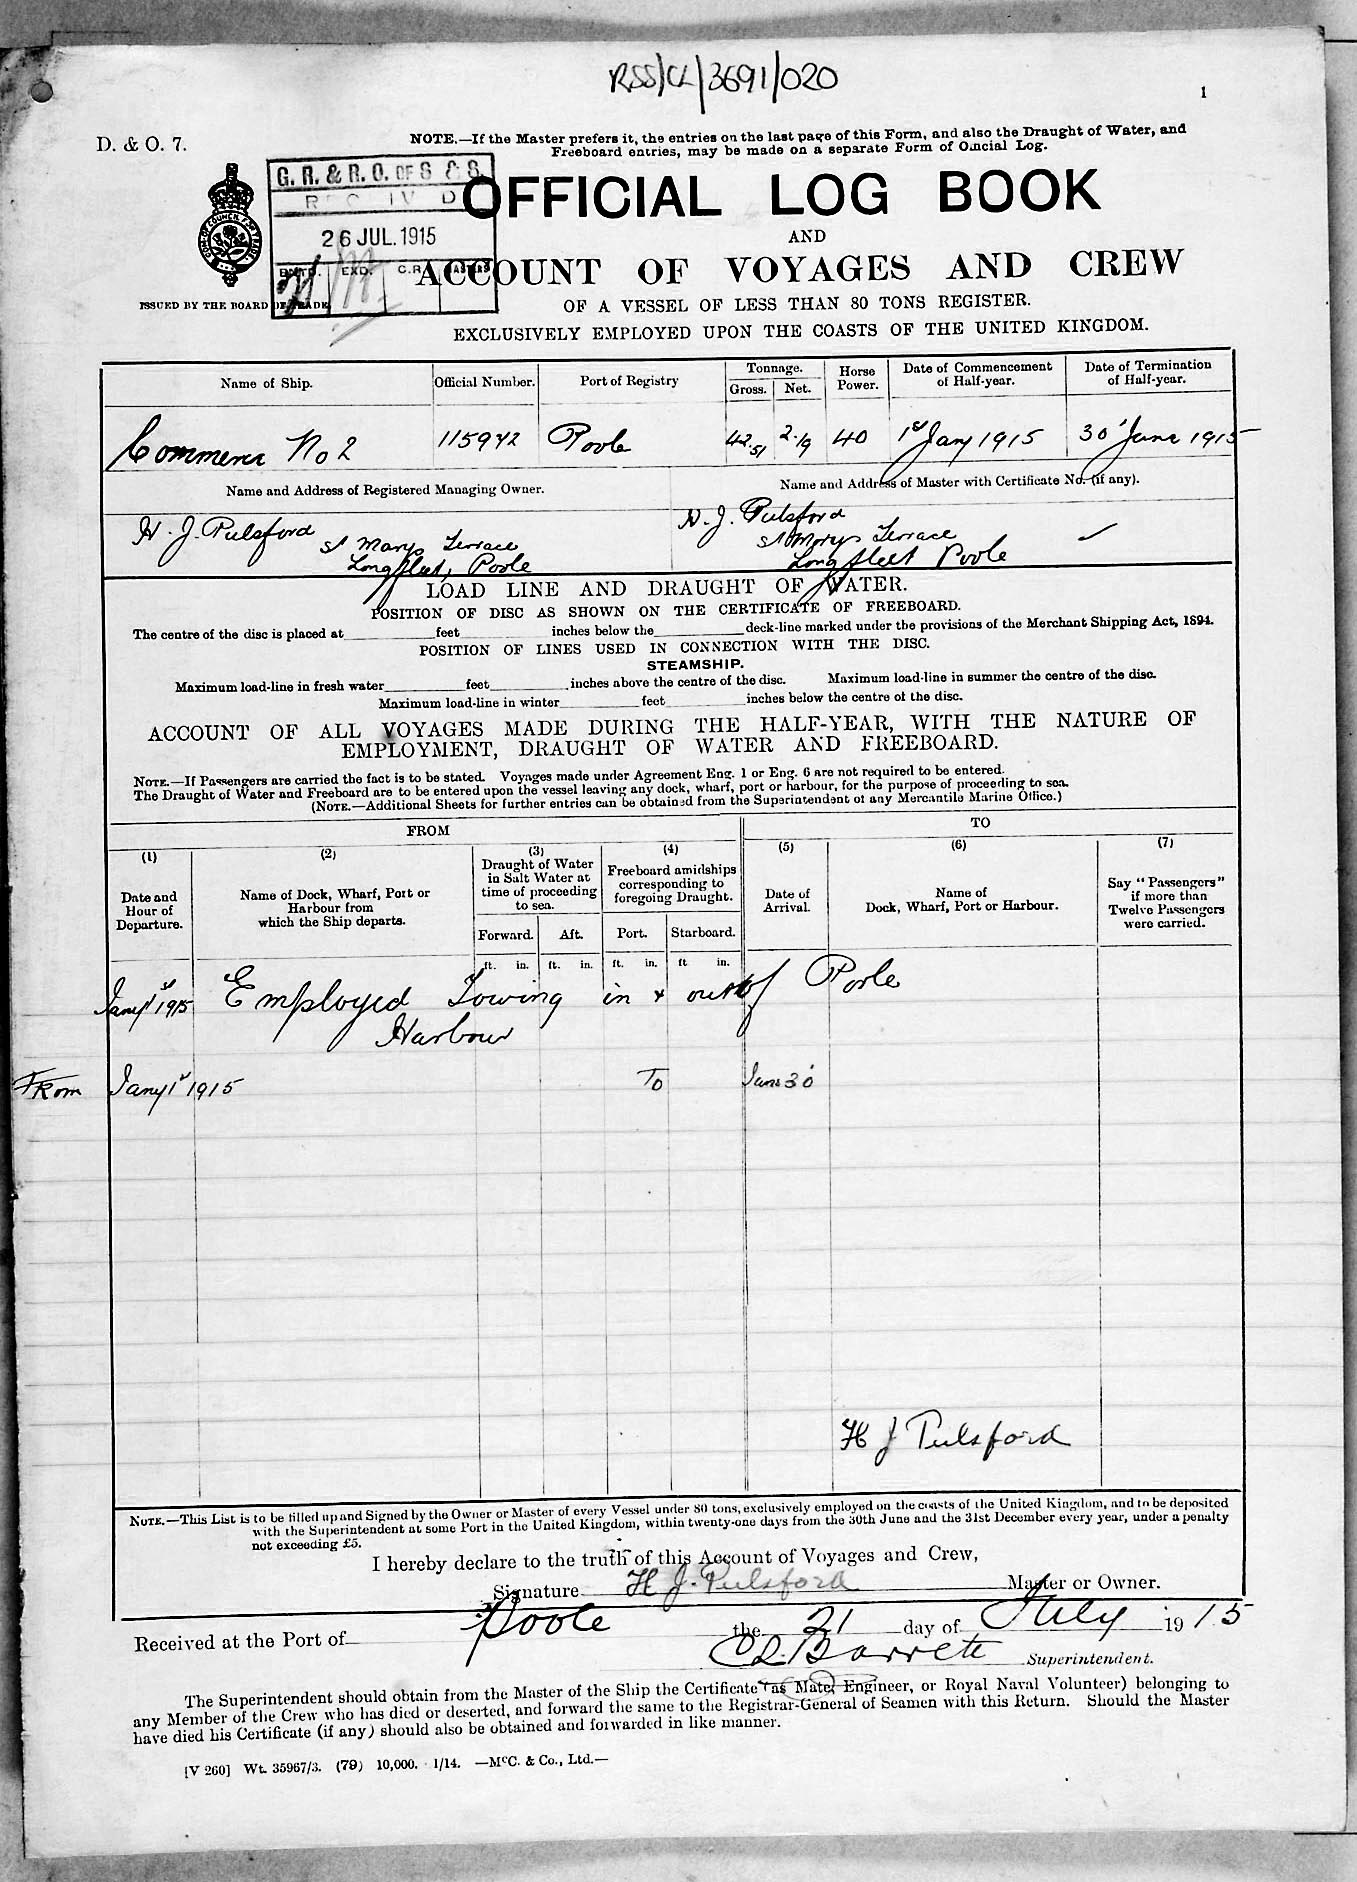 RSS/CL/3691/020
1
D. & O. 7.
NOTE.—If the Master prefers it, the entries on the last page of this Form, and also the Draught of Water, and
Freeboard entries, may be made on a separate Form of Official Log.
G. R. & R. O. OF S & S.
26 JUL. 1915
ENTD. EXD. C.R.
OFFICIAL LOG BOOK
AND
ACCOUNT OF VOYAGES AND CREW
ISSUED BY THE BOARD OF TRADE
OF A VESSEL OF LESS THAN 80 TONS REGISTER.
EXCLUSIVELY EMPLOYED UPON THE COASTS OF THE UNITED KINGDOM.
Name of Ship. Official Number. Port of Registry Tonnage. Gross. Net. Horse Power. Date of Commencement of Half-year. Date of Termination of Half-year.
No 2 115942 Poole 42.51 2.19 40 1st Jany 1915 30 June 1915
Name and Address of Registered Managing Owner. Name and Address of Master with Certificate No. (if any).
H. J. Pulsford H. J. Pulsford
St Marys Terrace St Marys Terrace
Longfleet, Poole Longfleet Poole
LOAD LINE AND DRAUGHT OF WATER.
POSITION OF DISC AS SHOWN ON THE CERTIFICATE OF FREEBOARD.
The centre of the disc is placed at feet inches below the deck-line marked under the provisions of the Merchant Shipping Act, 1894.
POSITION OF LINES USED IN CONNECTION WITH THE DISC.
STEAMSHIP.
Maximum load-line in fresh water feet inches above the centre of the disc. Maximum load-line in summer the centre of the disc.
Maximum load-line in winter feet inches below the centre of the disc.
ACCOUNT OF ALL VOYAGES MADE DURING THE HALF-YEAR, WITH THE NATURE OF
EMPLOYMENT, DRAUGHT OF WATER AND FREEBOARD.
NOTE.—If Passengers are carried the fact is to be stated. Voyages made under Agreement Eng. 1 or Eng. 6 are not required to be entered.
The Draught of Water and Freeboard are to be entered upon the vessel leaving any dock, wharf, port or harbour, for the purpose of proceeding to sea.
(NOTE.—Additional Sheets for further entries can be obtained from the Superintendent of any Mercantile Marine Office.)
FROM TO
(1) (2) (3) (4) (5) (6) (7)
Date and Hour of Departure.
Name of Dock, Wharf, Port or Harbour from which the Ship departs.
Draught of Water in Salt Water at time of proceeding to sea.
Freeboard amidships corresponding to foregoing Draught.
Date of Arrival.
Name of Dock, Wharf, Port or Harbour.
Say "Passengers" if more than Twelve Passengers were carried.
Forward. Aft. Port. Starboard.
ft. in. ft. in. ft. in. ft in.
Jany 1st 1915 Employed Towing in & out of Poole
Harbour
From Jany 1st 1915 To June 30
H J Pulsford
NOTE.—This List is to be filled up and Signed by the Owner or Master of every Vessel under 80 tons, exclusively employed on the coasts of the United Kingdom, and to be deposited
with the Superintendent at some Port in the United Kingdom, within twenty-one days from the 30th June and the 31st December every year, under a penalty
not exceeding £5.
I hereby declare to the truth of this Account of Voyages and Crew,
Signature H J. Pulsford Master or Owner.
Received at the Port of Poole the 21 day of July 1915
Barrett Superintendent.
The Superintendent should obtain from the Master of the Ship the Certificate (as Mate, Engineer, or Royal Naval Volunteer) belonging to
any Member of the Crew who has died or deserted, and forward the same to the Registrar-General of Seamen with this Return. Should the Master
have died his Certificate (if any) should also be obtained and forwarded in like manner.
[V 260] Wt. 35967/3. (79) 10,000. 1/14. —McC. & Co., Ltd.—